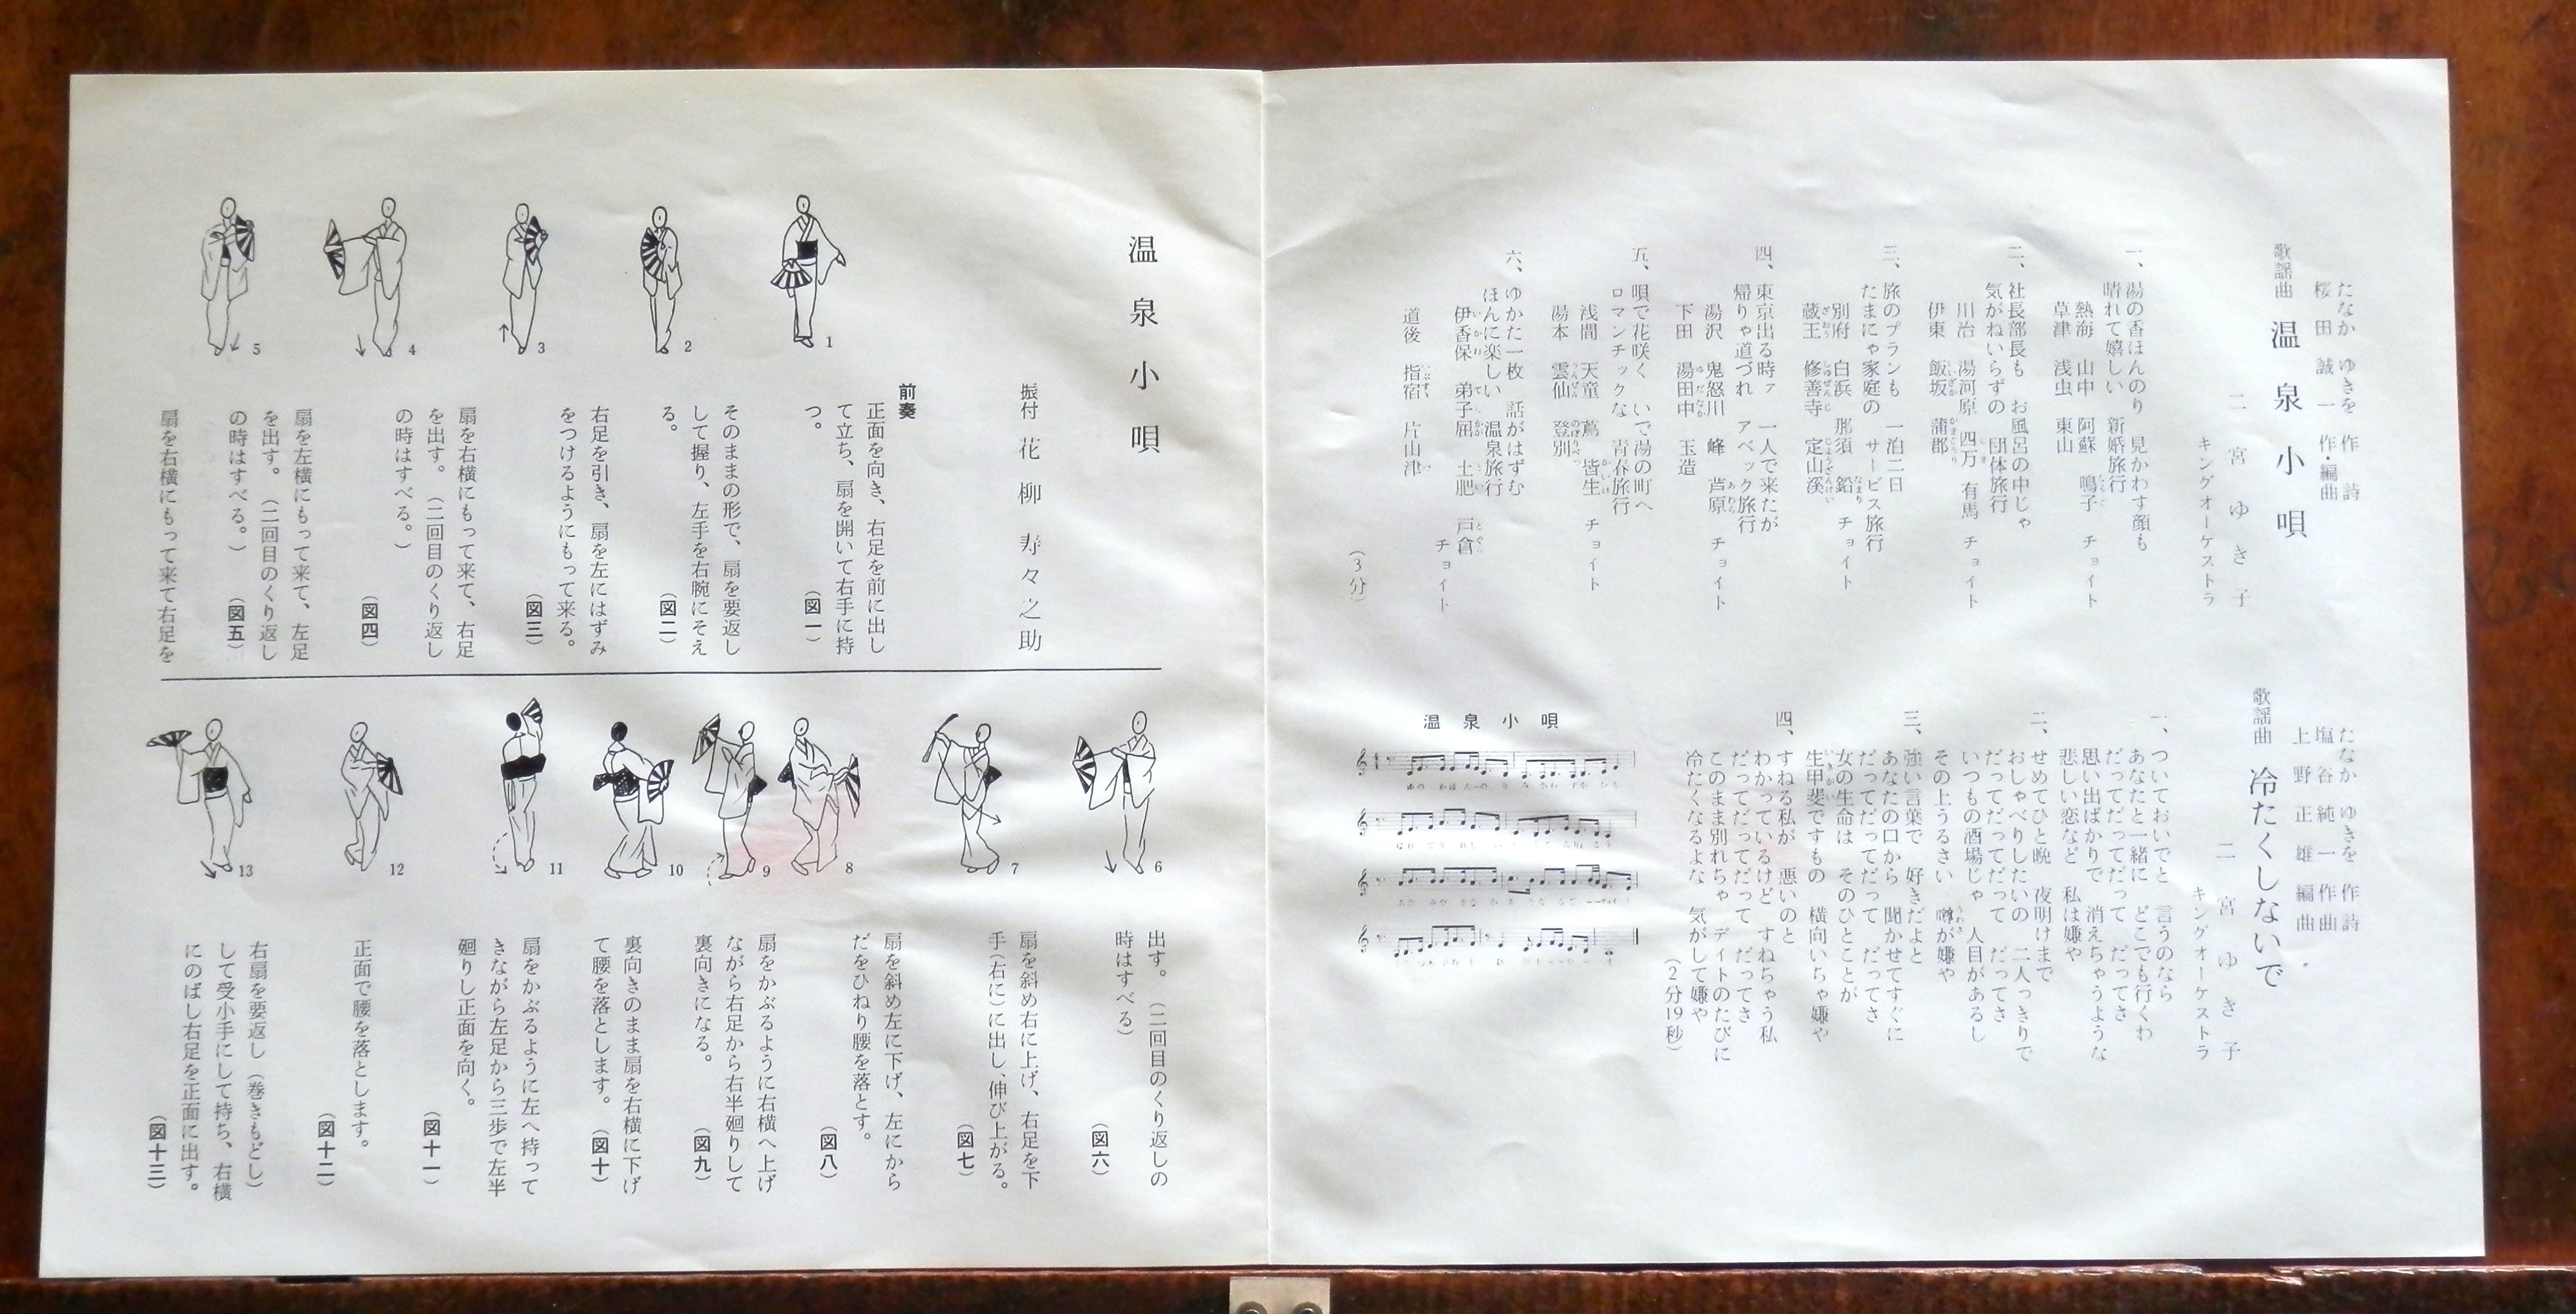 たなか ゆきを 作詩
桜田 誠一 作・編曲
歌謡曲 温泉小唄
二宮ゆき子
キングオーケストラ
一、湯の香ほんのり 見かわす顔も
晴れて嬉しい 新婚旅行
熱海 山中 阿蘇 鳴子 チョイト
草津 浅虫 東山
二、社長部長も お風呂の中じゃ
気がねいらずの 団体旅行
川治 湯河原 四万 有馬 チョイト
伊東 飯坂 蒲郡
三、旅のプランも 一泊二日
たまにゃ家庭の サービス旅行
別府 白浜 那須 鉛 チョイト
蔵王 修善寺 定山溪
四、東京出る時ァ 一人で来たが
帰りゃ道づれ アベック旅行
湯沢 鬼怒川 峰 芦原 チョイト
下田 湯田中 玉造
五、唄で花咲く いで湯の町へ
ロマンチックな 青春旅行
浅間 天童 蔦 皆生 チョイト
湯本 雲仙 登別
六、ゆかた一枚 話がはずむ
ほんに楽しい 温泉旅行
伊香保 弟子屈 土肥 戸倉 チョイト
道後 指宿 片山津
(3分)
たなか ゆきを 作詩
塩谷 純一 作曲
上野 正雄 編曲
歌謡曲 冷たくしないで
二宮ゆき子
キングオーケストラ
一、ついておいでと 言うのなら
あなたと一緒に どこでも行くわ
だってだってだって だってさ
思い出ばかりで 消えちゃうような
悲しい恋など 私は嫌や
二、せめてひと晩 夜明けまで
おしゃべりしたいの 二人っきりで
だってだってだって だってさ
いつもの酒場じゃ 人目があるし
その上うるさい 噂が嫌や
三、強い言葉で 好きだよと
あなたの口から 聞かせてすぐに
だってだってだって だってさ
女の生命は そのひとことが
生甲斐ですもの 横向いちゃ嫌や
四、すねる私が 悪いのと
わかっているけど すねちゃう私
だってだってだって だってさ
このまま別れちゃ デイトのたびに
冷たくなるよな 気がして嫌や
(2分19秒)
温泉小唄
温泉小唄
振付 花柳寿々之助
前奏
正面を向き、右足を前に出し
て立ち、扇を開いて右手に持
つ。 (図一)
そのままの形で、扇を要返し
して握り、左手を右腕にそえ
る。 (図二)
右足を引き、扇を左にはずみ
をつけるようにもって来る。
(図三)
扇を右横にもって来て、右足
を出す。(二回目のくり返し
の時はすべる。)
(図四)
扇を左横にもって来て、左足
を出す。(二回目のくり返し
の時はすべる。) (図五)
扇を右横にもって来て右足を
1
2
3
4
5
出す。(二回目のくり返しの
時はすべる)
(図六)
扇を斜め右に上げ、右足を下
手(右に)に出し、伸び上がる。
(図七)
扇を斜め左に下げ、左にから
だをひねり腰を落とす。
(図八)
扇をかぶるように右横へ上げ
ながら右足から右半廻りして
裏向きになる。 (図九)
裏向きのまま扇を右横に下げ
て腰を落とします。 (図十)
扇をかぶるように左へ持って
きながら左足から三歩で左半
廻りし正面を向く。
(図十一)
正面で腰を落とします。
(図十二)
右扇を要返し(巻きもどし)
して受小手にして持ち、右横
にのばし右足を正面に出す。
(図十三)
6
7
8
9
10
11
12
13